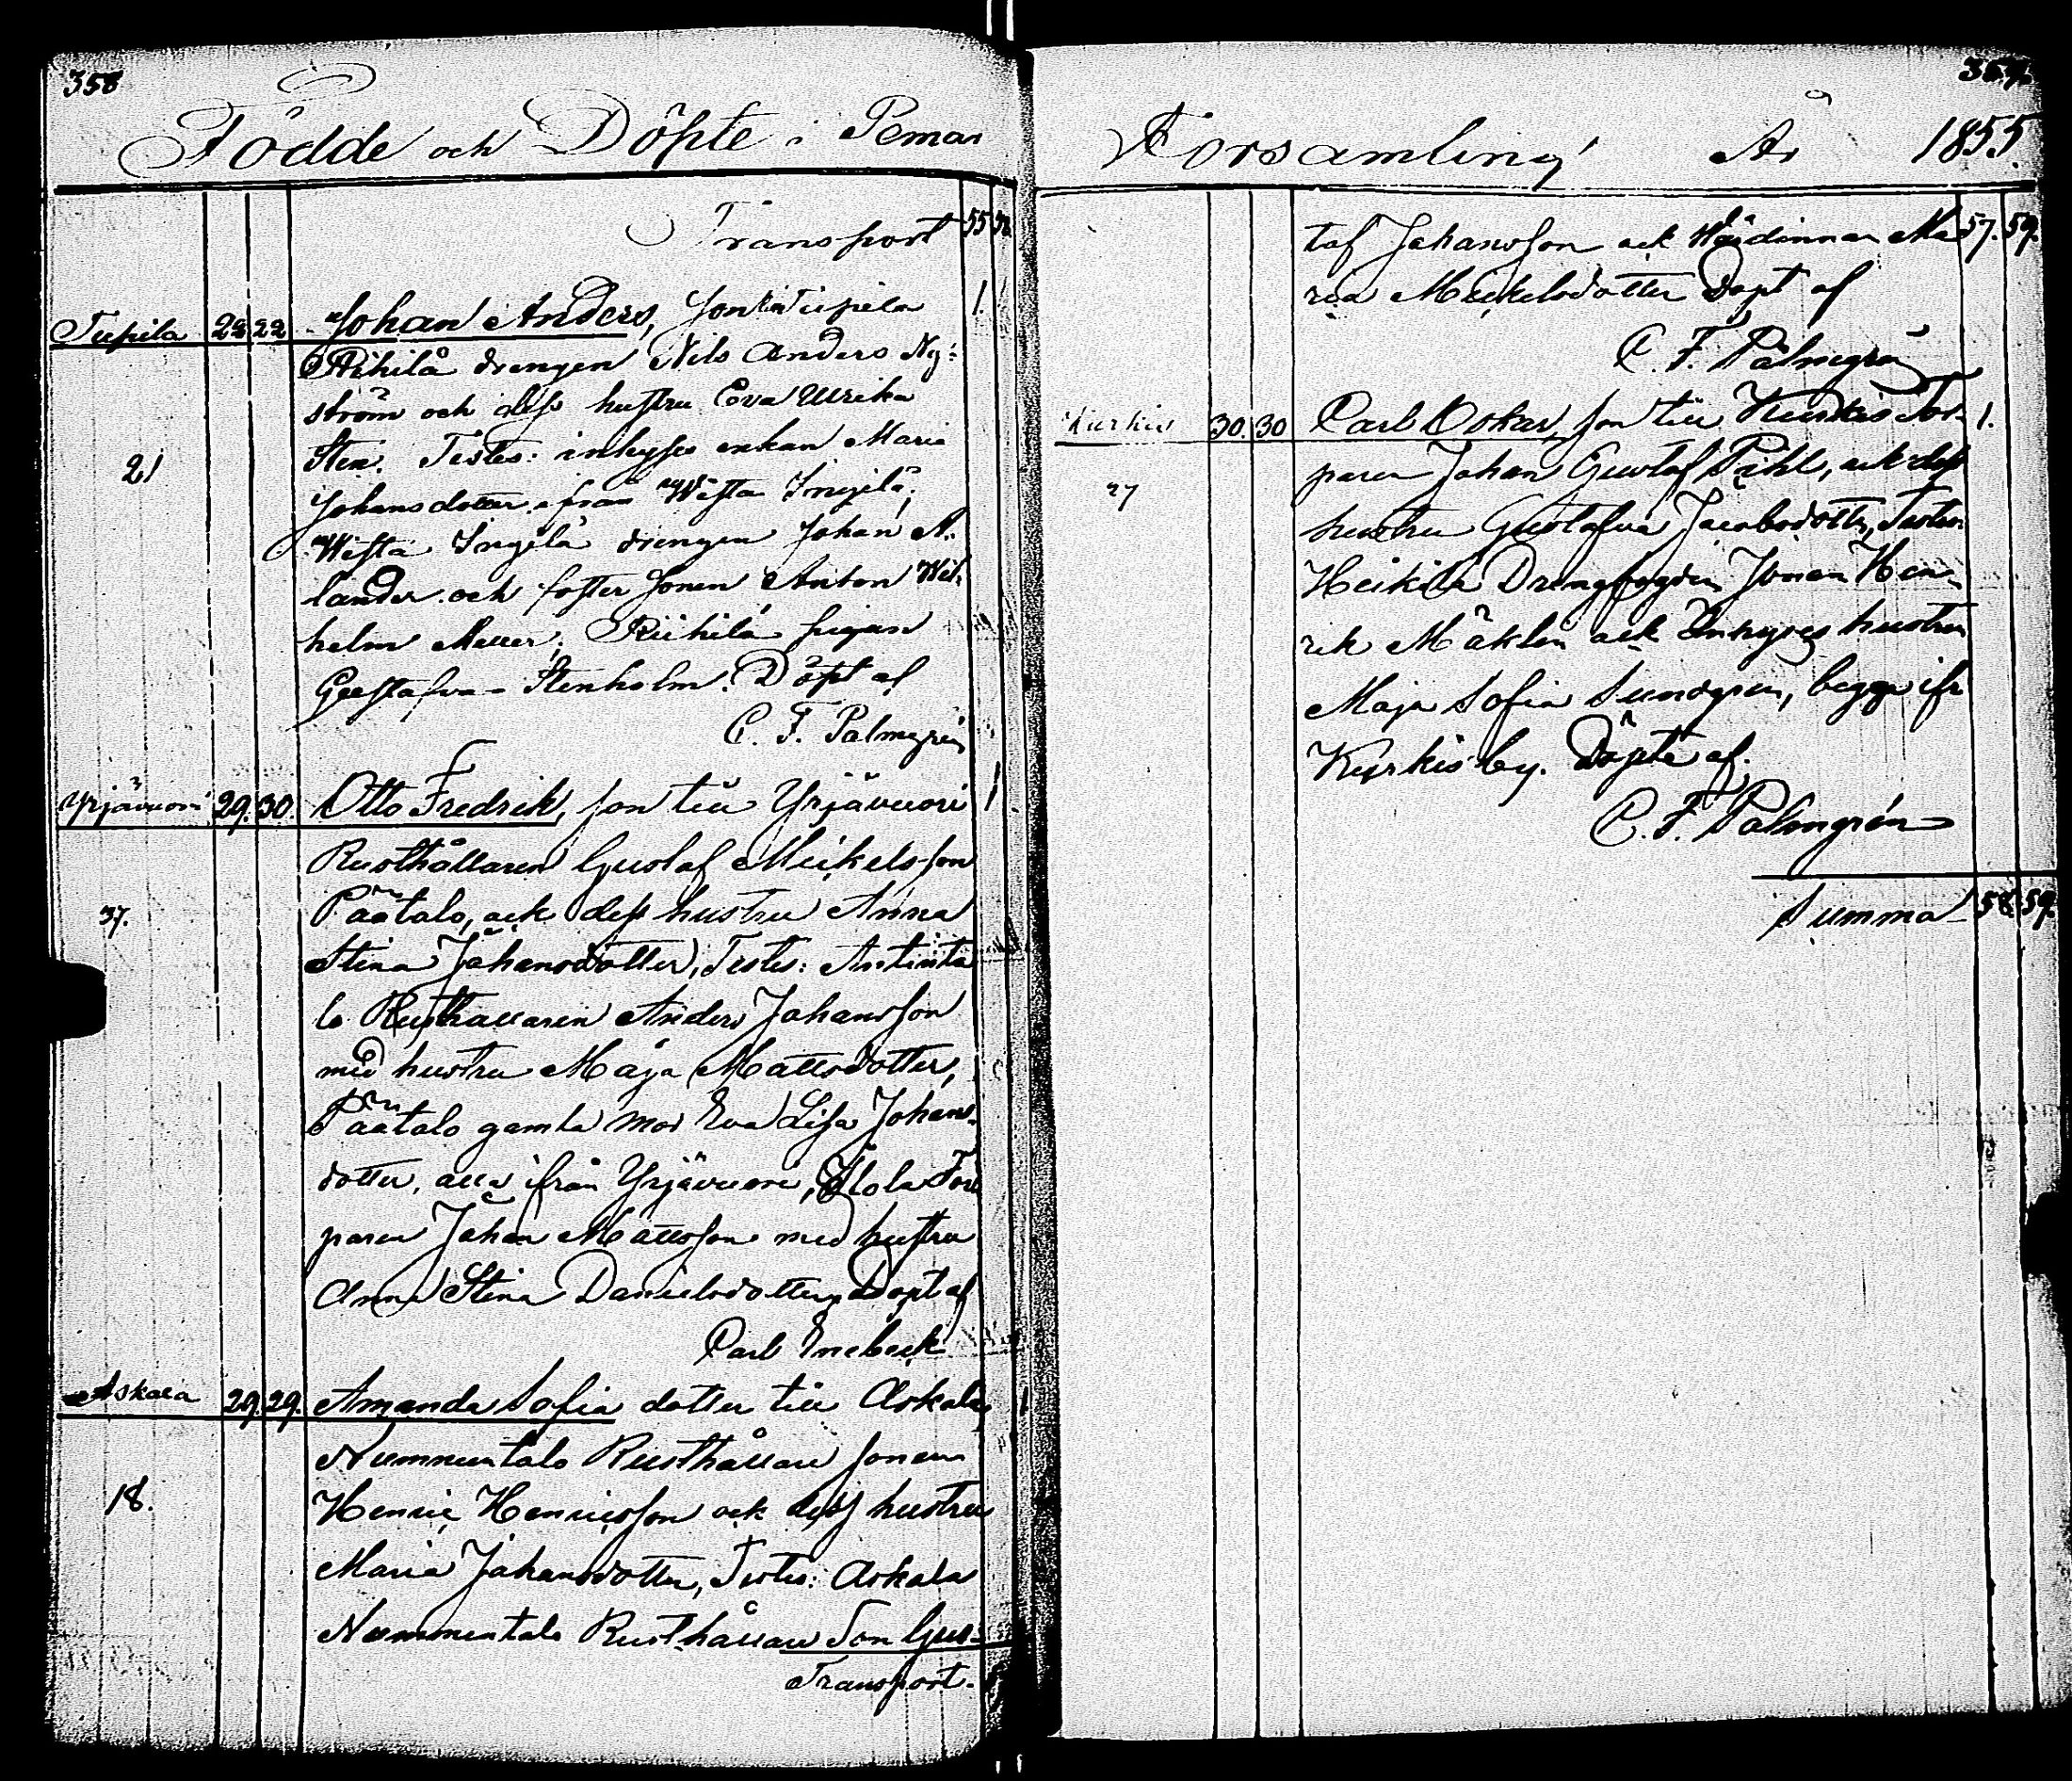 358
Födde och Döpte i Pemar
Transport 55
Tiipila 22 22 Johan Anders, son till Tiipila 1.
Riihilä drengen Nils Anders Ny-
ström och dess hustru Eva Ulrika
Sten. Testes: inhyses enkan Maria
21
Johansdotter från Wista Ingilä,
Wista Ingilä drengen Johan A.
lander och foster sonen Anton Wil-
helm Meller, Riihilä pigan
Gustafva Stenholm. Döpt af
C. F. Palmgrén
Yrjävuori 29. 30. Otto Fredrik, son till Yrjävuori 1
Rusthållaren Gustaf Mickelsson
37.
Päätalo, ock dess hustru Anna
Stina Johansdotter, Testes: Antinta
lo Rusthållaren Anders Johansson
med hustru Maja Mattsdotter,
Päätalo gamla mor Eva Lisa Johans-
dotter, alla ifrån Yrjävuori, Tor
paren Johan Mattsson med hustru
Anna Stina Danielsdotter, Döpt af
Carl Enebeck
Askala 29. 29. Amanda Sofia dotter till Askala 1
Nummentalo Rusthållare sonen
18.
Henric Henricsson ock dess hustru
Maria Johansdotter, Testes: Askala
Nummentalo Rusthållare Son Gus-
Transport.
359.
Församling År 1855.
taf Johansson ock Värdinnan Ma 57. 59.
ria Mickelsdotter Döpt af
C. F. Palmgrén
Kurkis 30. 30 Carl Oskar, son till Kurkis Tor- 1.
paren Johan Gustaf Pihl, ock dess
27
hustru Gustafva Jacobsdotter, Testes:
Heikilä Drengfogden Johan Hen-
rik Mäklin ock Inhyses hustrun
Maja Sofia Sundgren, begge ifr
Kurkis by. Döpte af.
C. F. Palmgrén
Summa 58. 59.